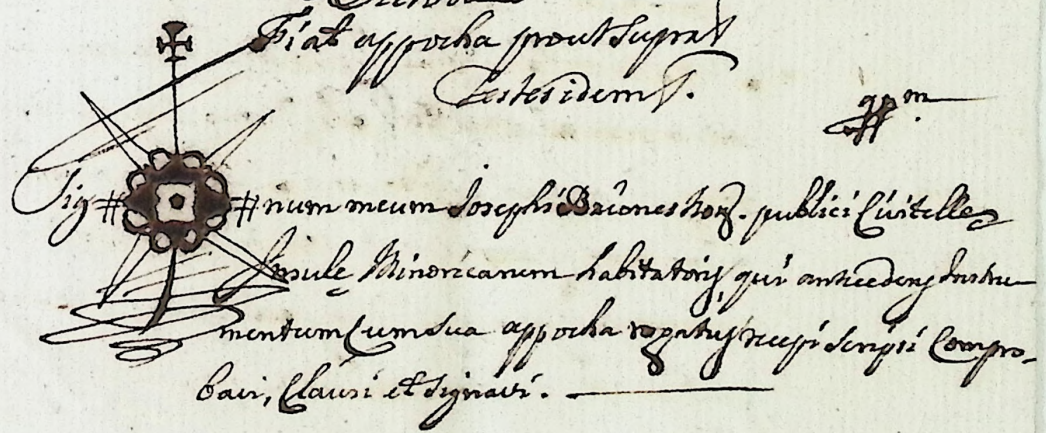 Fiat appocha prout supra
Testes idem
Sig # # num meum Josephi Briones Not. publici Civitelle
Insule Minoricarum habitatoris, qui antecedens Instru-
mentum Cum sua appocha rogatus recepi scripsi Compro-
bavi, Clausi et signavi.